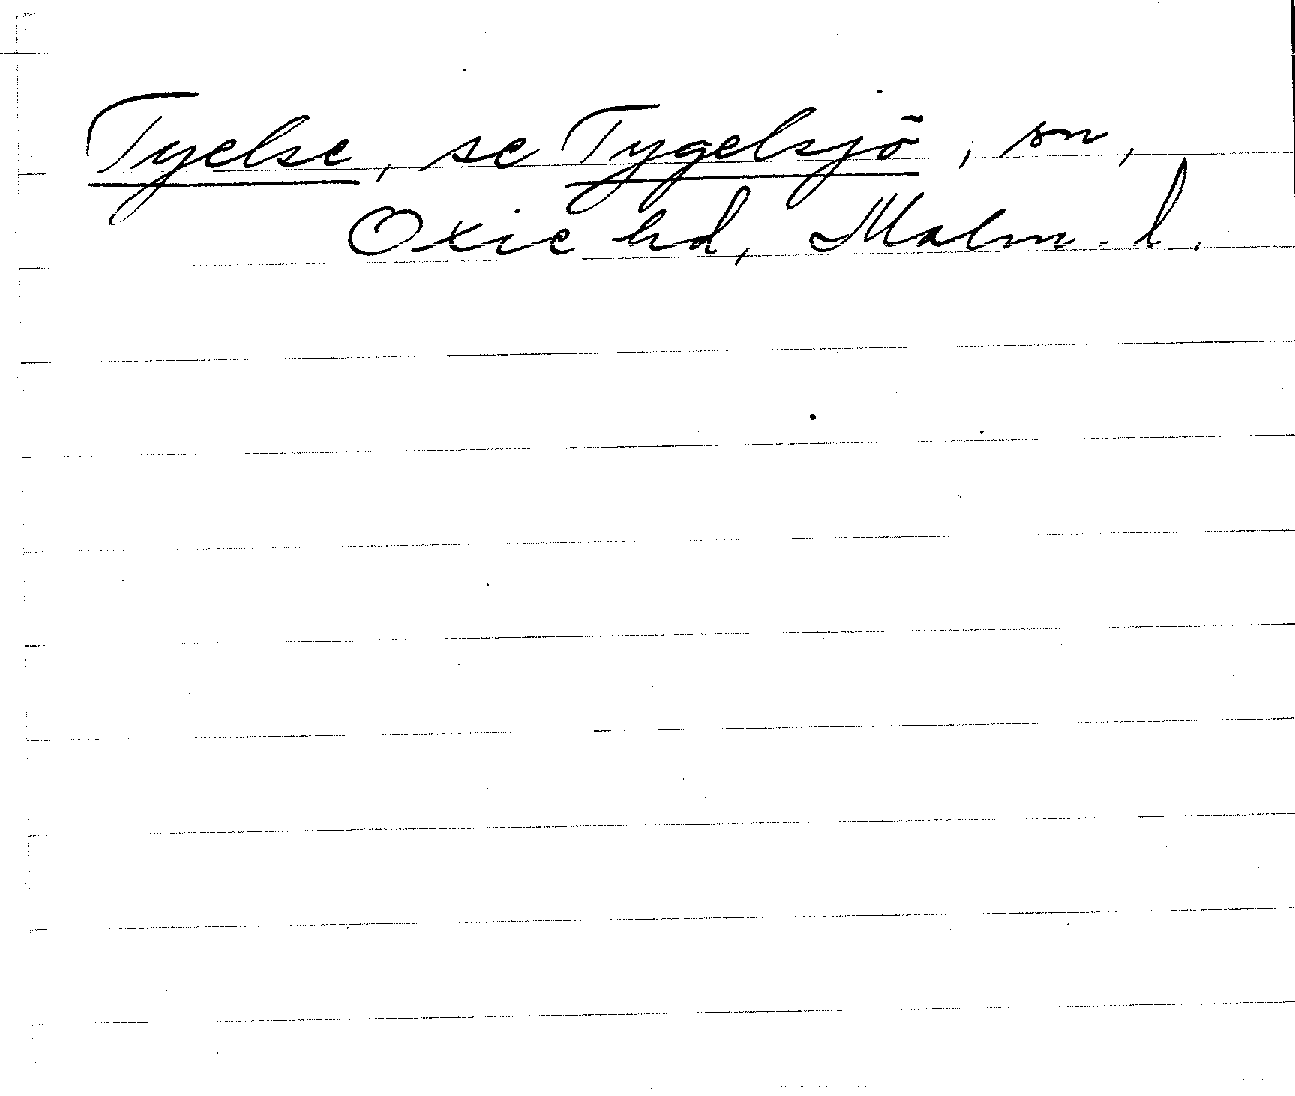 Tyelse, se Tygelsjö, sn,
Oxie hd, Malm. l.